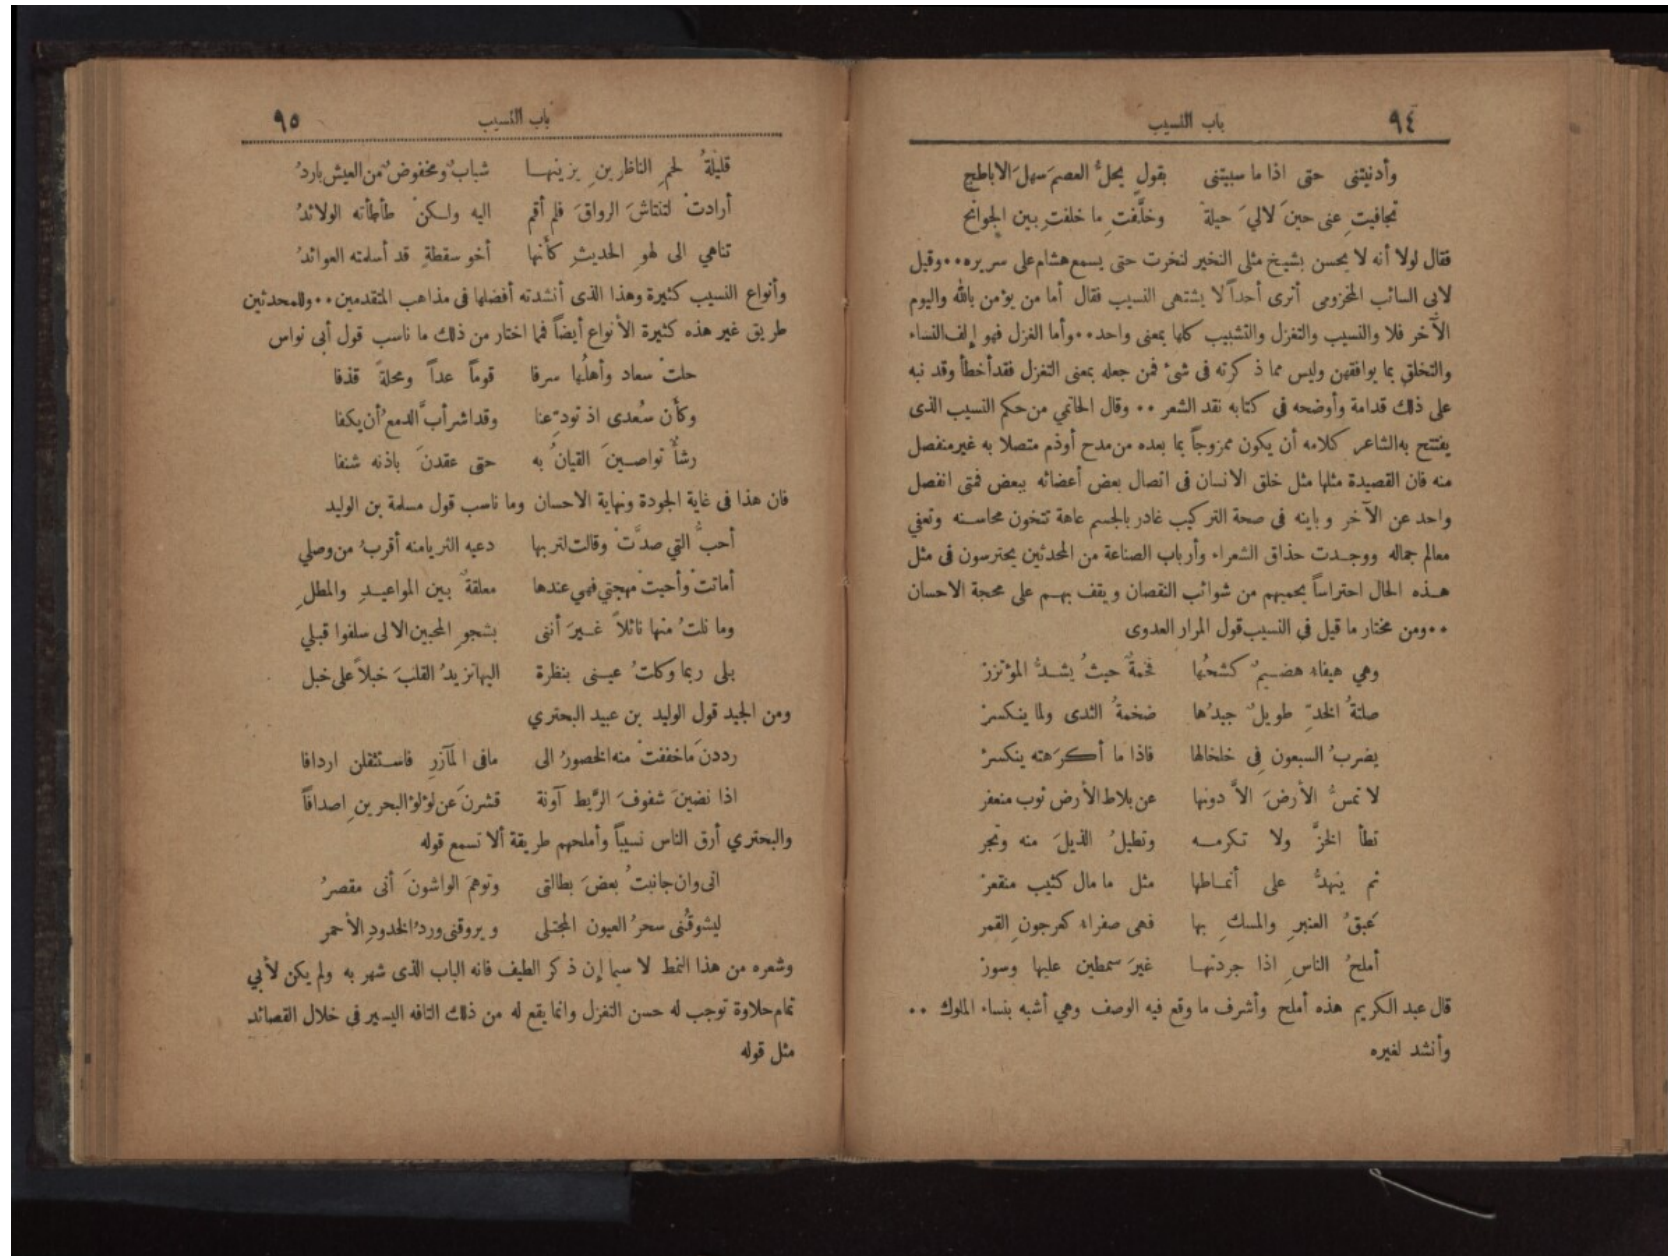 ٩٤ باب النسيب
وأدنيتنى حتى اذا ما سبيتنى بقولٍ يحلُّ العصمَ سهلَ الاباطحِ
تجافيتِ عنى حينَ لاليَ حيلةٌ وخلَّفتِ ما خلفتِ بين الجوانحِ
فقال لولا أنه لا يحسن بشيخ مثلى النخير لنخرت حتى يسمع هشام على سريره٠٠وقيل
لابى السائب المخزومى أترى أحداً لا يشتهى النسيب فقال أما من يؤمن بالله واليوم
الآخر فلا والنسيب والتغزل والتشبيب كلها بمعنى واحد٠٠وأما الغزل فهو إلف النساء
والتخلق بما يوافقهن وليس مما ذكرته فى شئ فمن جعله بمعنى التغزل فقد أخطأ وقد نبه
على ذلك قدامة وأوضحه فى كتابه نقد الشعر ٠٠ وقال الحاتمي من حكم النسيب الذى
يفتتح به الشاعر كلامه أن يكون ممزوجاً بما بعده من مدح أوذم متصلا به غير منفصل
منه فان القصيدة مثلها مثل خلق الانسان فى اتصال بعض أعضائه ببعض فمتى انفصل
واحد عن الآخر و باينه فى صحة التركيب غادر بالجسم عاهة تتخون محاسنه وتعفي
معالم جماله ووجدت حذاق الشعراء وأرباب الصناعة من المحدثين يحترسون فى مثل
هذه الحال احتراساً يحميهم من شوائب النقصان ويقف بهم على محجة الاحسان
٠٠ومن مختار ما قيل في النسيب قول المرار العدوى
وهي هيفاء هضيمٌ كشحُها فخمةٌ حيثُ يشدُّ المؤتزرْ
صلتةُ الخدِّ طويلٌ جيدُها ضخمةُ الثدى ولما ينكسرْ
يضربُ السبعون فى خلخالها فاذا ما أكرَهته ينكسرْ
لا تمسُّ الأرضَ الاَّ دونها عن بلاط الأرض ثوب منعفر
تطأ الخزَّ ولا تكرمه وتطيلُ الذيلَ منه وتجر
ثم ينهدُّ على أنماطها مثل ما مال كثيب منقعرْ
عَبقُ العنبرِ والمسكِ بها فهى صفراء كعرجونِ القمر
أملحُ الناسِ اذا جردتها غيرَ سمطين عليها وسورْ
قال عبد الكريم هذه أملح وأشرف ما وقع فيه الوصف وهي أشبه بنساء الملوك ٠٠
وأنشد لغيره
باب النسيب ٩٥
قليلةُ لحمِ الناظرينِ يزينها شبابٌ ومخفوضٌ من العيش باردُ
أرادتْ لتنتاشَ الرواقَ فلم أقم اليه ولكنْ طأطأته الولائدُ
تناهي الى لهوِ الحديثِ كأنها أخو سقطةٍ قد أسلمته العوائدُ
وأنواع النسيب كثيرة وهذا الذى أنشدته أفضلها فى مذاهب المتقدمين٠٠وللمحدثين
طريق غير هذه كثيرة الأنواع أيضاً فما اختار من ذلك ما ناسب قول أبى نواس
حلتْ سعاد وأهلُها سرفا قوماً عداً ومحلةً قذفا
وكأن سُعدى اذ تودّعنا وقد اشرأبَّ الدمعُ أن يكفا
رشأٌ تواصينَ القيانُ به حتى عقدنَ باذنه شنفا
فان هذا فى غاية الجودة ونهاية الاحسان وما ناسب قول مسلمة بن الوليد
أحبُّ التي صدَّتْ وقالت لتربها دعيه الثريا منه أقربُ من وصلي
أماتتْ وأحيتْ مهجتي فهي عندها معلقةٌ بين المواعيدِ والمطلِ
وما نلتُ منها نائلاً غيرَ أننى بشجوِ المحبين الالى سلفوا قبلي
بلى ربما وكلتُ عينى بنظرة اليها تزيدُ القلبَ خبلاً على خبل
ومن الجيد قول الوليد بن عبيد البحتري
رددنَ ماخففتْ منه الخصورُ الى مافى المآزرِ فاستثقلن اردافا
اذا نضينَ شفوفَ الرَّيط آونة قشرنَ عن لؤلؤ البحرينِ اصدافاً
والبحتري أرق الناس نسيباً وأملحهم طريقة ألا تسمع قوله
انى وان جانبتُ بعضَ بطالتى وتوهمَ الواشونَ أنى مقصرُ
ليشوقُنى سحرُ العيون المجتلى ويروقنى وردُ الخدودِ الأحمر
وشعره من هذا النمط لا سيما إن ذكر الطيف فانه الباب الذى شهر به ولم يكن لأبي
تمام حلاوة توجب له حسن التغزل وانما يقع له من ذلك التافه اليسير فى خلال القصائد
مثل قوله